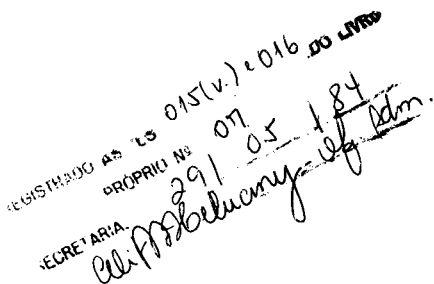 REGISTRADO AS FLS 015(v.) e 016 DO LIVRO
PRÓPRIO Nº 07
SECRETARIA, 29/ 05 / 84
Of Adm.